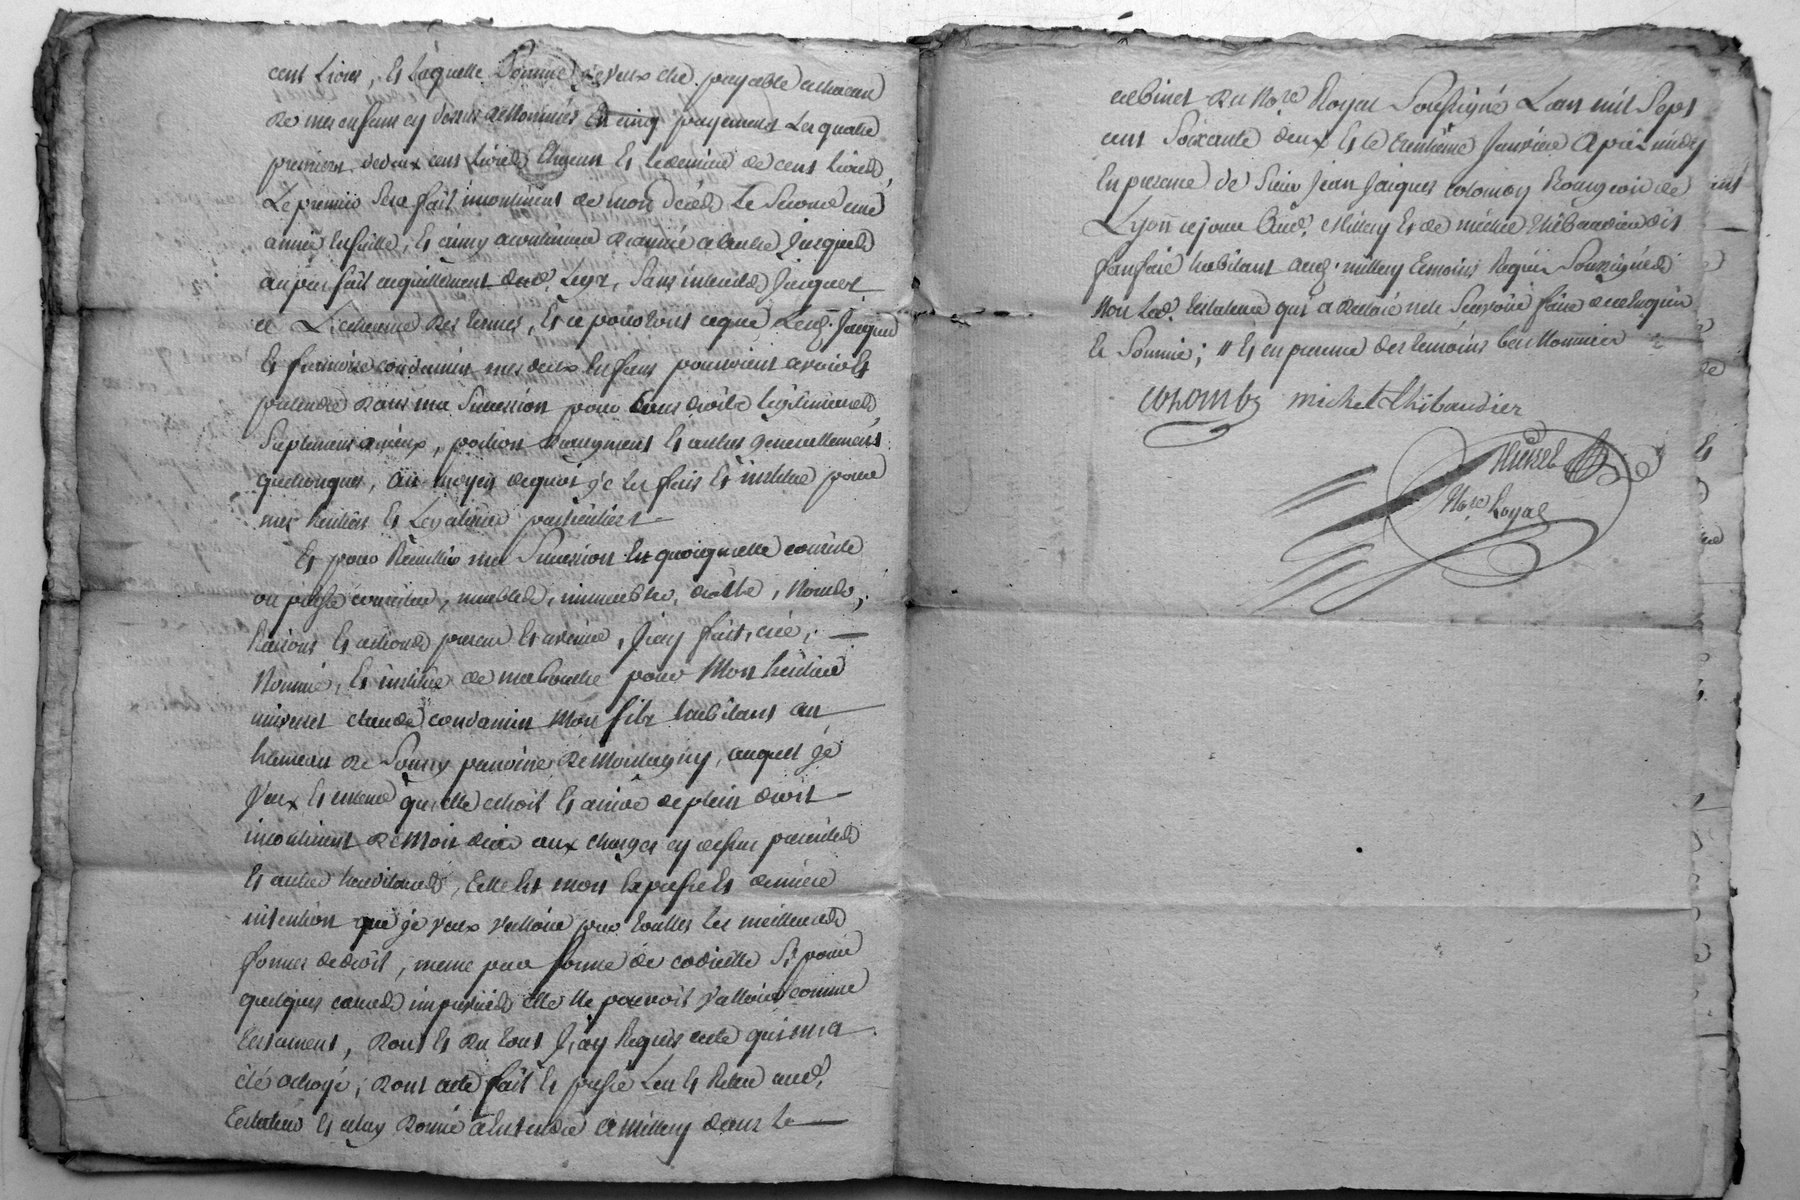 cent Livres, Et laquelle Somme je veux etre payable a chacun
de mes enfans cy dessus denommés En cinq payements Les quatre
premiers de deux cens livres Chacun Et le dernier de cent livres,
Le premier Sera fait incontinent de mon décès Le Second une
année Ensuitte, Et ainsy acontinuer d'année a lautre Jusques
au parfait acquittement dud. Legs, Sans interets Jusques
a L'echeance des termes, Et ce pour tous ce que Lesd. Jacques
Et francoise condamin mes deux Enfans pourroient avoir Et
pretendre dans ma Succession pour tous droits legitimaires
Suplement diceux, portion d'augment Et autres generallements
quelconques, au moyen dequoi je les fais Et institue pour
mes heritiers Et Legataires particuliers
Et pour Recueillir ma Succession En quoiquelle consiste
ou puisse consister, meubles, immeubles, droits, Noms,
Raisons Et actions present Et avenir, J'ay fait, crée,
Nommé, Et institué de ma bouche pour Mon heritier
universel claude condamin Mon fils habitant au
hameau de Sourzy parroisse de Montagny, auquel je
Veux Et entend qu'elle echoit Et arrive de plein droit
incontinent de Mon decès aux charges cy dessus precisées
Et autres hereditaires, Telle Est mon Expresse Et derniere
intention que je veux valloir par touttes les meilleures
formes de droit, meme par forme de codicille Si pour
quelques causes impreveües elle Ne pouvoit valloir comme
testament, dont Et du tout J'ay Requis acte qui m'a
été octroyé, dont acte fait Et passé Leu Et Releu aud.
Testateur Et a luy donné a Entendre a Millery dans le
cabinet du No.re Royal Soussigné L'an mil Sept
cent Soixante deux Et le trentieme Janvier Après midy
En presence de Sieur Jean Jacques colomby Bourgeois de
Lyon sejour. aud. Millery Et de michel thibaudier dit
fanfare habitant aud. millery temoins Requis Soussignés
Non Led. testateur qui a declaré ne le Scavoir faire de ce Enquis
Et Sommé; // Et en presence des temoins bas Nommés
colomby michel thibaudier
No.re Royal